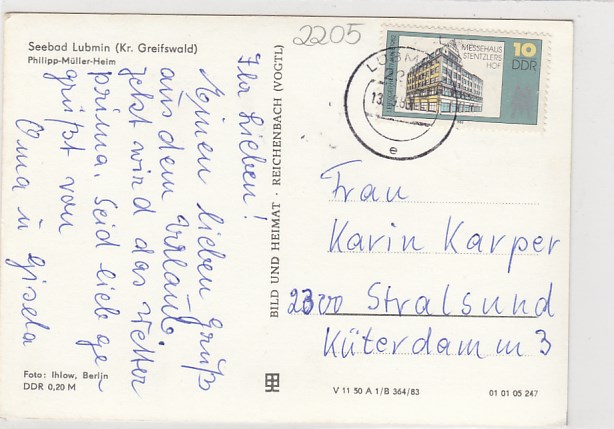 Seebad Lubmin (Kr. Greifswald)
Philipp-Müller-Heim
2205
MESSEHAUS
STENTZLERS
HOF
10
DDR
LUBMIN
e
Ihr Lieben!
Einen lieben Gruß
aus dem Urlaub.
Jetzt wird das Wetter
prima. Seid lieb ge
grüßt von
Oma u Gisela
BILD UND HEIMAT · REICHENBACH (VOGTL)
Frau
Karin Karper
2300 Stralsund
Küterdamm 3
Foto: Ihlow, Berlin
DDR 0,20 M
V 11 50 A 1/B 364/83
01 01 05 247